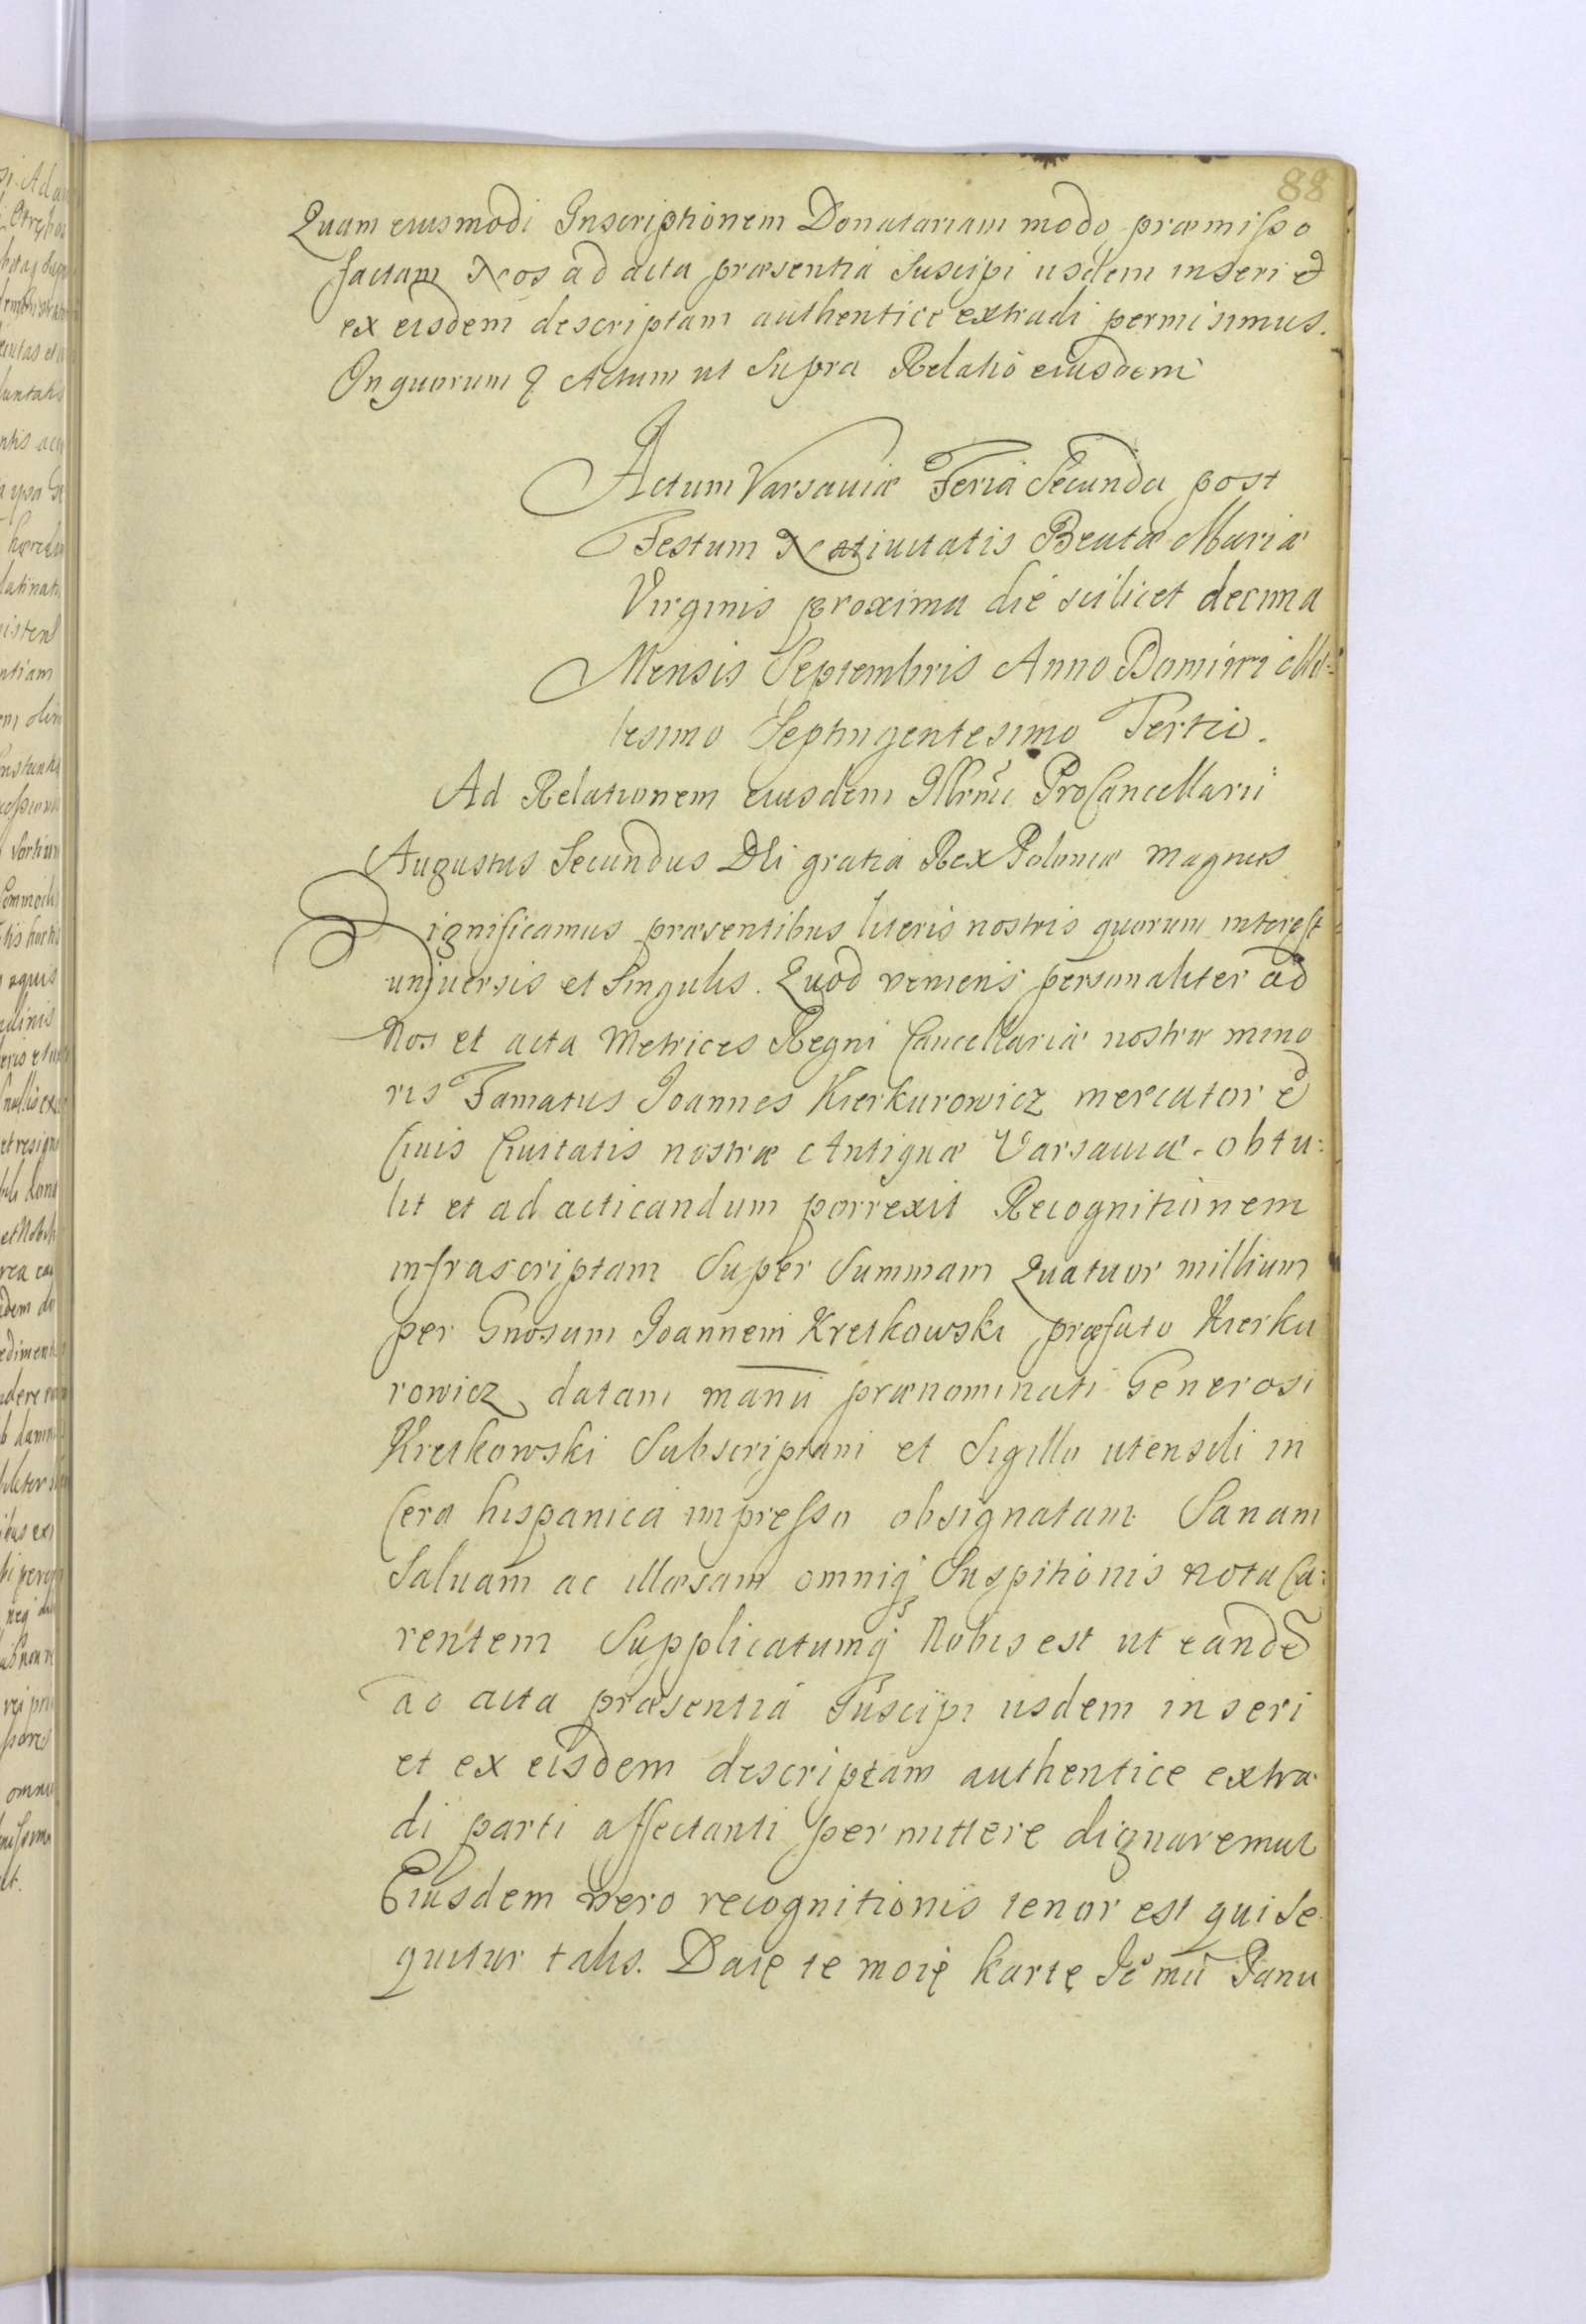 88
Quam eiusmodi Inscriptionem Donatariam modo præmisso
factam Nos ad acta præsentia suscipi iisdem inseri et
ex eisdem descriptam authentice extradi permisimus.
In quorum & Actum ut supra Relatio eiusdem
Actum Varsaviæ Feria Secunda post
Festum Nativitatis Beatæ Mariæ
Virginis proxima die scilicet decima
Mensis Septembris Anno Domini Mil:
lesimo Septingentesimo Tertio.
Ad Relationem eiusdem Illrmi ProCancellarii
Augustus Secundus Dei gratia Rex Poloniæ magnus
Significamus præsentibus literis nostris quorum interest
universis et singulis. Quod veniens personaliter ad
Nos et acta Metrices Regni Cancellariæ nostræ mino
ris Famatus Joannes Kierkurowicz mercator et
Civis Civitatis nostræ Antiquæ Varsaviæ obtu:
lit et ad acticandum porrexit Recognitionem
infrascriptam super summam Quatuor millium
per Gnosum Joannem Kretkowski præfato Kierku
rowicz datam manu prænominati Generosi
Kretkowski subscriptam et sigillo utensili in
cera hispanica impresso obsignatam Sanam
salvam ac illæsam omniq suspitionis nota ca:
rentem supplicatumq Nobis est ut eande
ad acta præsentia suscipi iisdem inseri
et ex eisdem descriptam authentice extra
di parti affectanti permittere dignaremur
Eiusdem vero recognitionis tenor est qui se
quitur talis. Daię te moię kartę Je mu Panu